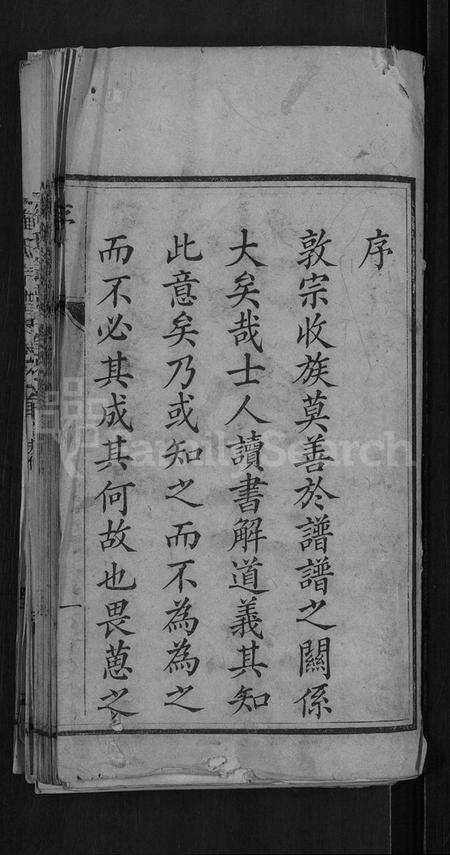 序
敦宗收族莫善於譜譜之關係
大矣哉士人讀書解道義其知
此意矣乃或知之而不為為之
而不必其成其何故也畏葸之
序
一
FamilySearch